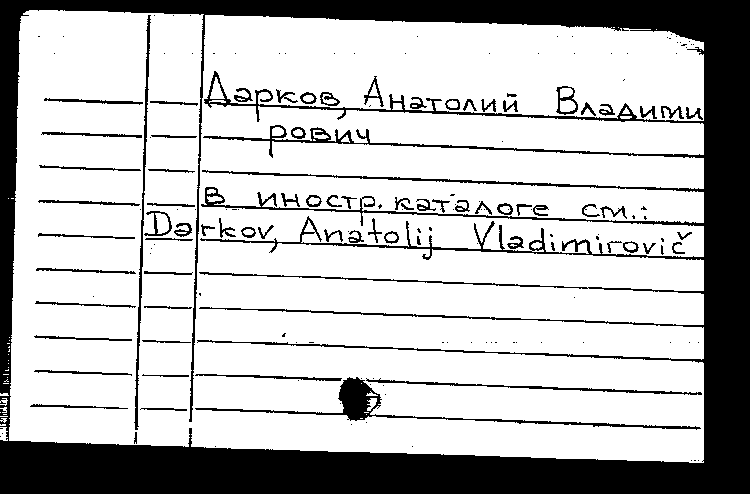 Дарков, Анатолий Владими
рович
в иностр. каталоге см.:
Darkov, Anatolij Vladimirovič